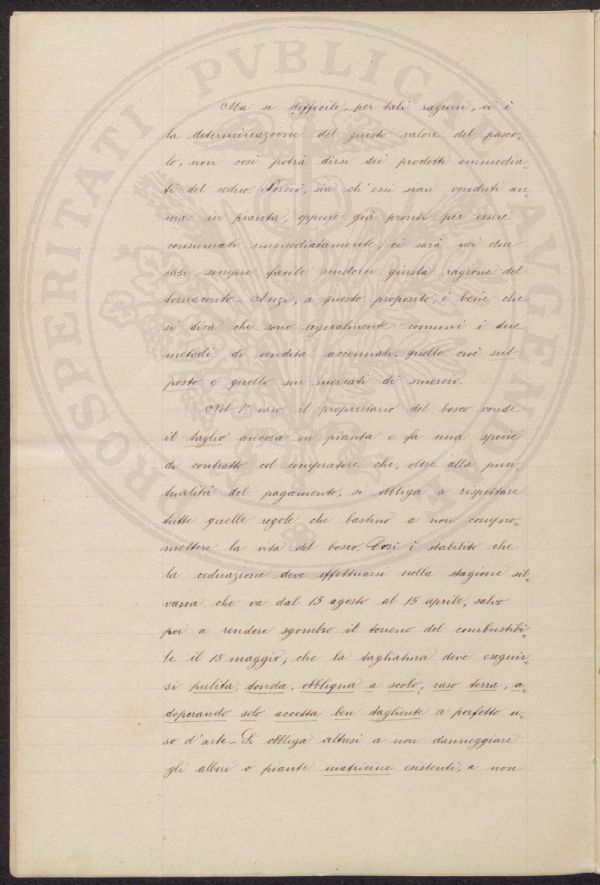 Ma se difficile, per tali ragioni, ci è
la determinazione del giusto valore del pasco-
lo, non così potrà dirsi dei prodotti immedia-
ti del ceduo. Perciò, sia ch'essi sian venduti an-
cora in pianta, oppure già pronti per essere
consumati immediatamente, ci sarà nei due
casi, sempre facile renderci giusta ragione del
tornaconto. Anzi, a questo proposito, è bene che
si dica che sono egualmente comuni i due
metodi di vendita accennati, quello cioè sul
posto e quello sui mercati di smercio.
Nel 1° caso il proprietario del bosco vende
il taglio ancora in pianta e fa una specie
di contratto col compratore che, oltre alla pun-
tualità del pagamento, si obbliga a rispettare
tutte quelle regole che bastino a non compro-
mettere la vita del bosco. Così è stabilito che
la ceduazione deve effettuarsi nella stagione sil-
vana che va dal 15 agosto al 15 aprile, salvo
poi a rendere sgombro il terreno del combustibi-
le il 15 maggio; che la tagliatura deve eseguir-
si pulita, tonda, obbliqua a scolo, raso terra, a-
doperando solo accetta ben tagliente a perfetto u-
so d'arte_ Si obbliga altresì a non danneggiare
gli alberi o piante matricine esistenti, a non
PROSPERITATI PVBLICAE AVGENDAE